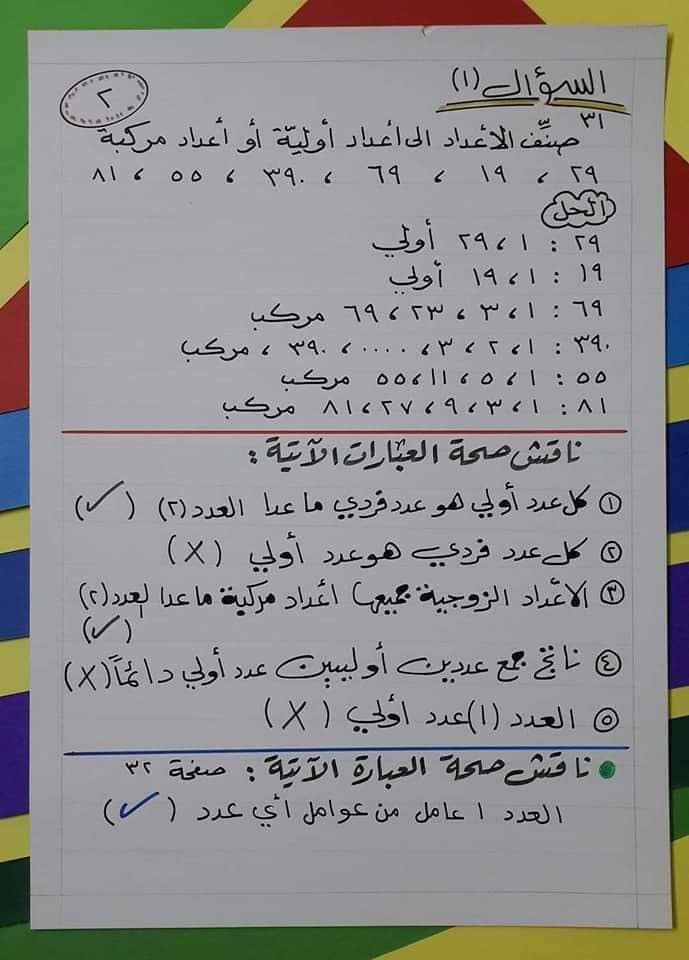 ٢
السؤال (١)
٣١
صنِّف الأعداد الى أعداد أوليّة أو أعداد مركبة
٢٩ ، ١٩ ، ٦٩ ، ٣٩٠ ، ٥٥ ، ٨١
الحل
٢٩ : ١ ، ٢٩ أولي
١٩ : ١ ، ١٩ أولي
٦٩ : ١ ، ٣ ، ٢٣ ، ٦٩ مركب
٣٩٠ : ١ ، ٢ ، ٣ ، .... ، ٣٩٠ ، مركب
٥٥ : ١ ، ٥ ، ١١ ، ٥٥ مركب
٨١ : ١ ، ٣ ، ٩ ، ٢٧ ، ٨١ مركب
ناقش صحة العبارات الآتية :
١ كل عدد أولي هو عدد فردي ما عدا العدد (٢) (✓)
٢ كل عدد فردي هو عدد أولي (X)
٣ الأعداد الزوجية جميعها أعداد مركبة ما عدا العدد (٢)
(✓)
٤ ناتج جمع عددين أوليين عدد أولي دائماً (X)
٥ العدد (١) عدد أولي (X)
ناقش صحة العبارة الآتية : صفحة ٣٢
العدد ١ عامل من عوامل أي عدد (✓)